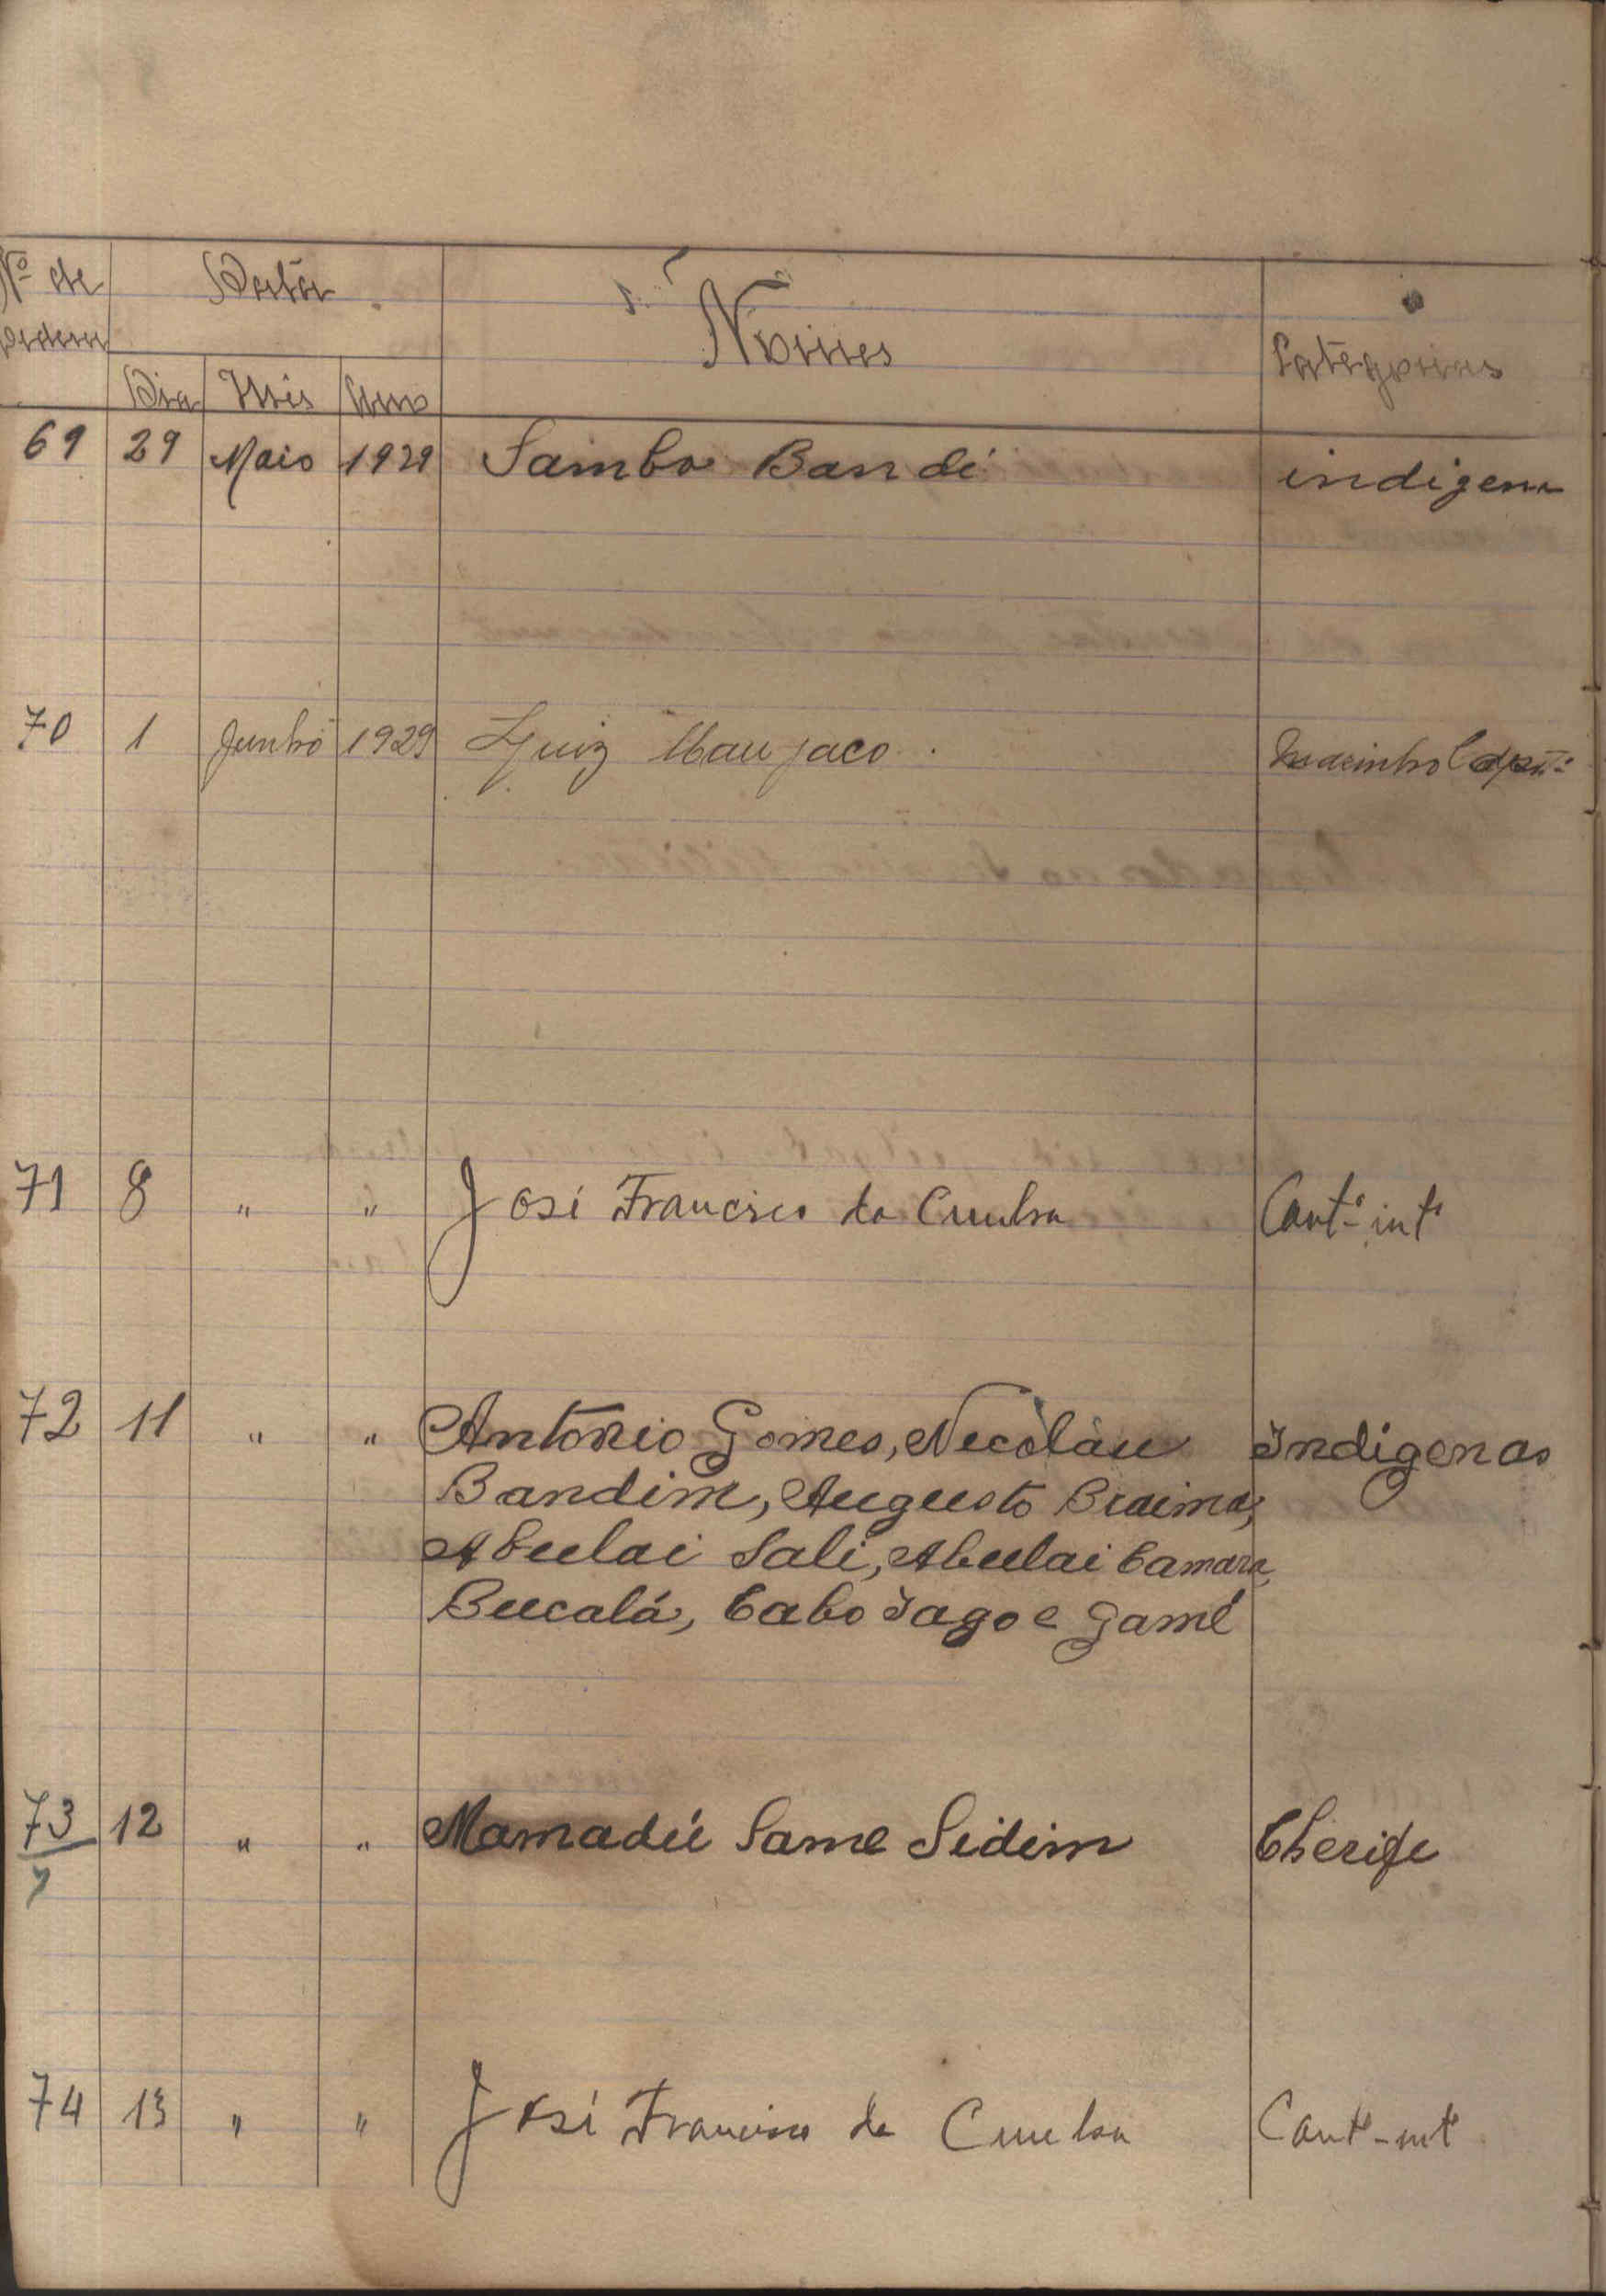 Nº de ordem Data Nomes Categorias
Dia Mês Ano
69 29 Maio 1929 Sambo Bandé indigena
70 1 Junho 1929 Luiz Manjaco Marinho Capit.
71 8 " " José Francisco da Cunha Cantº intº
72 11 " " António Gomes, Necolàu Indigenas
Bandim, Augusto Braima,
Abulai Sali, Abulai Camara,
Bucalá, Cabo Iago e Gamé
73 12 " " Mamadú Same Sidim Cherife
7
74 13 " " José Francisco da Cunha Cantº-intº